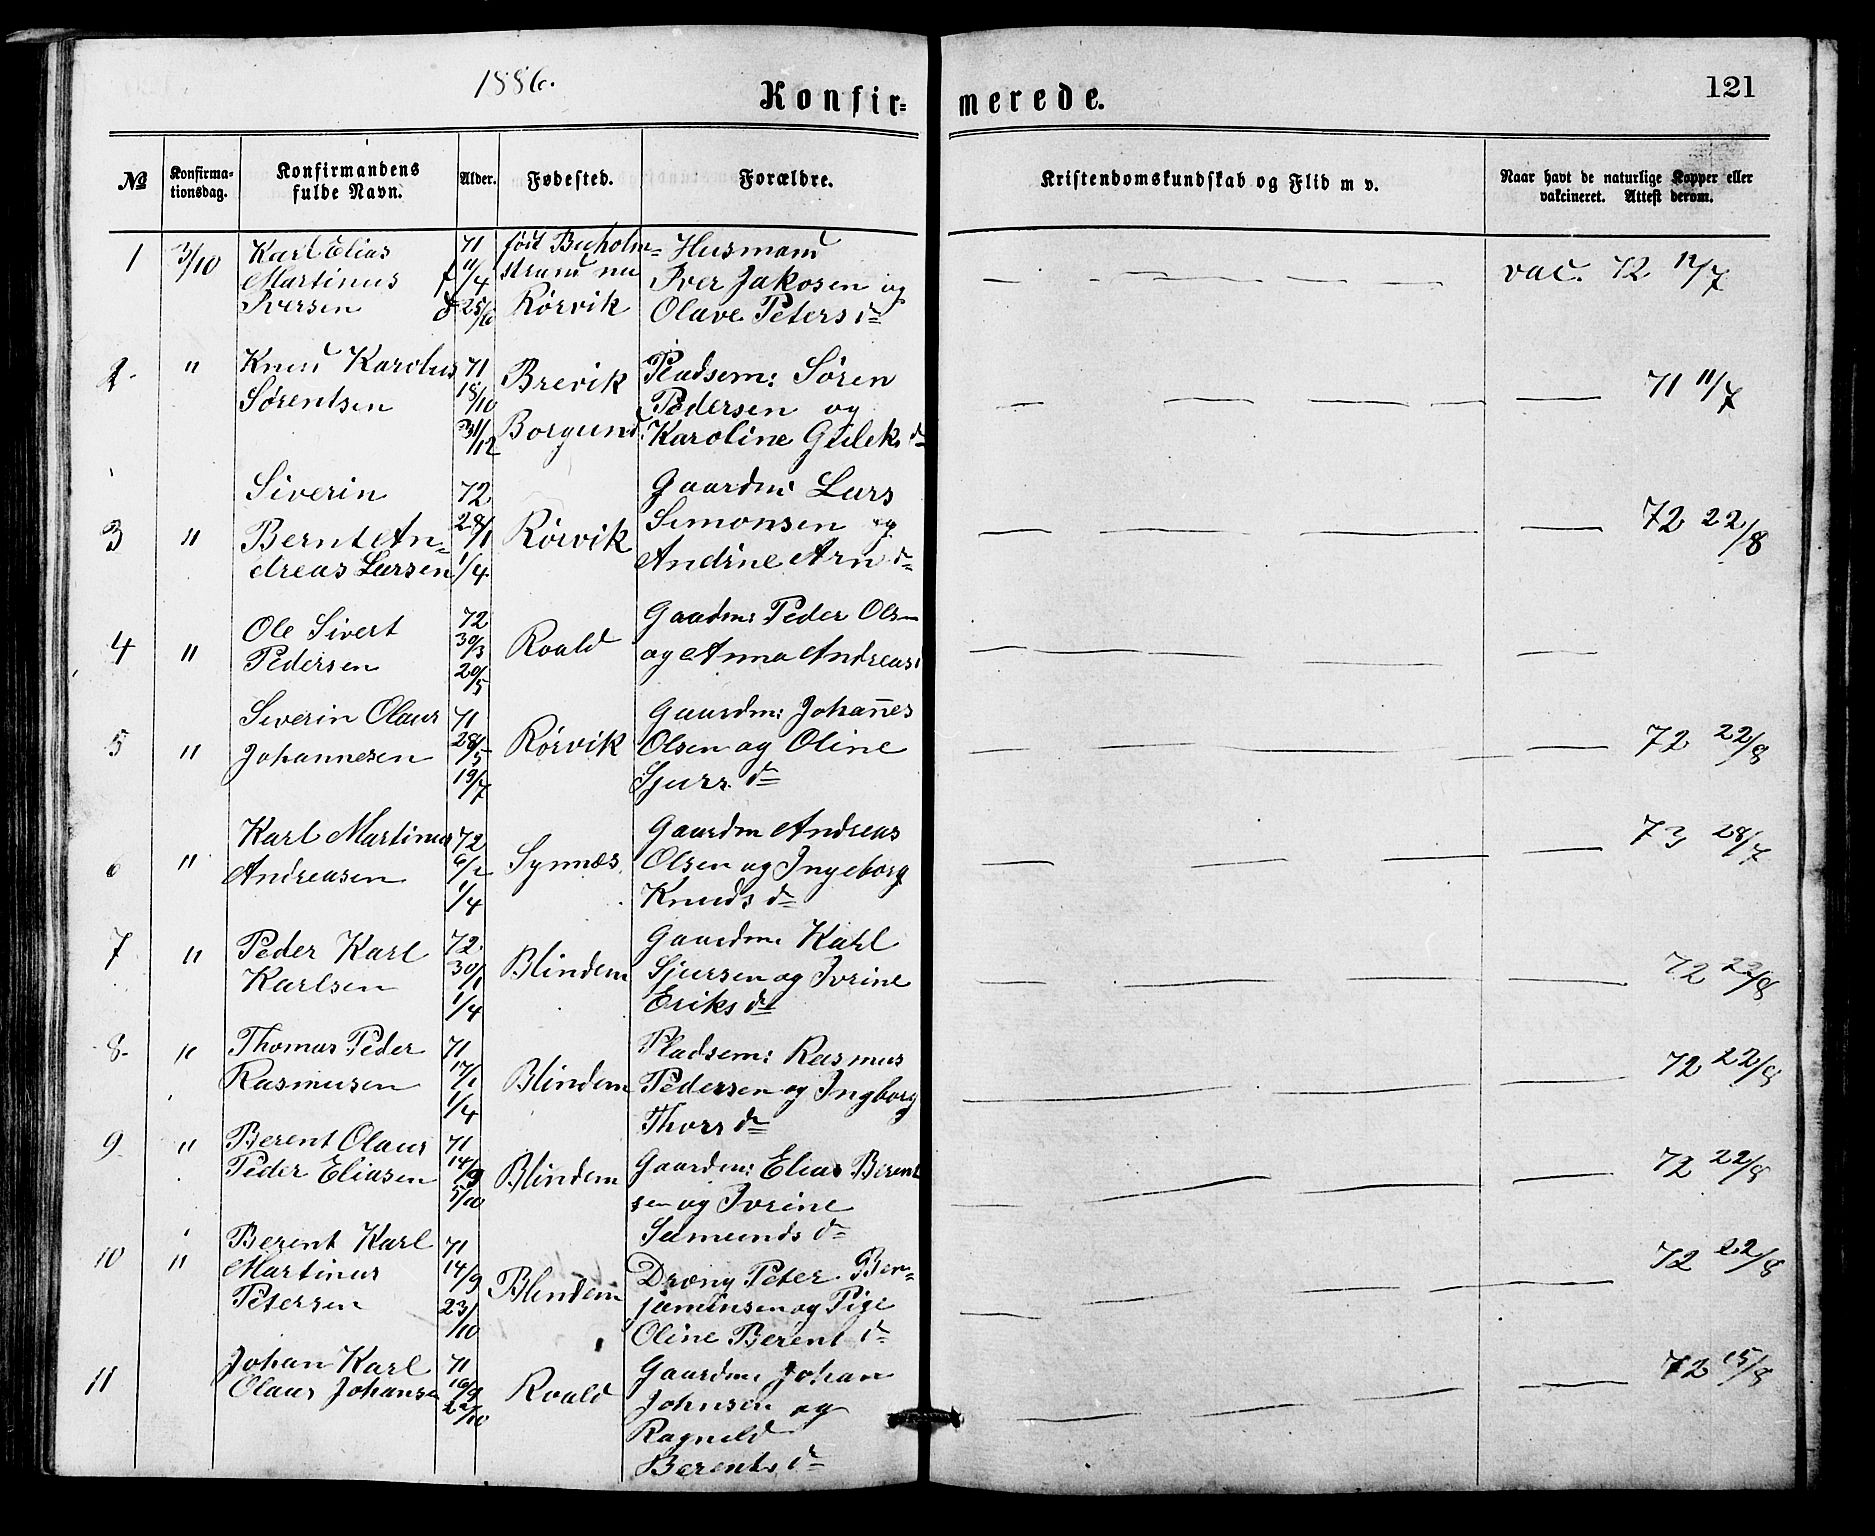 1886.
Konfir- merede.
121
№
Konfirma-
tionsdag.
Konfirmandens
fulde Navn.
Alder.
Fødested.
Forældre.
Kristendomskundskab og Flid m v.
Naar havt de naturlige Kopper eller
vakcineret. Attest derom.
1 3/10 Karl Elias 71 født Husmand
Martinus f 11/4 strand nu Iver Jakosen og vac. 72 12/7
Iversen d 25/6 Rörvik Olave Petersd
2. " Knud Karolus 71 Brevik Pladsem: Sören
Sørentsen 15/10 Pedersen og 71 11/7
31/12 Borgund Karoline d
Siverin 72 Gaardm: Lars
3 " Bernt An= 28/1 Rörvik Simonsen og 72 22/8
dreas Larsen 1/4 Andrine Arn d
4 " Ole Sivert 72 Roald Gaadm: Peder Olsen
Pedersen 30/3 og Anna Andreas
20/5
Siverin Olaus 71 Gaardm: Johannes
5 " Johannesen 28/5 Rörvik Olsen og Oline 72 22/8
19/7 Sjurs d
Karl Martinus 72 Gaardm Andreas 73 28/7
6 " Andreasen 6/2 Synnæs Olsen og Ingeborg
1/4 Knuds d
7 " Peder Karl 72 Blindem Gaardm: Karl
Karlsen 30/1 Sjursen og Ivrine 72 22/8
1/4 Eriks d
8. " Thomas Peder 71 Pladsem: Rasmus
Rasmusen 17/1 Blindem Pedersen og Ingborg 72 22/8
1/4 Thors d
9 " Berent Olaus 71
Peder Eliasen 14/9 Blindem Gaardem: Elias Berent 72 22/8
5/10 sen og Ivrine
Samunds d
10 " Berent Karl 71
Martinus 14/9 Blindem Dreng Peter Ben= 72 22/8
Petersen 23/10 jaminsen og Pige
Oline Berent d
11 Johan Karl 71 Gaardm. Johan 72 15/8
Olaus Johansen 16/9 Roald Johnsen og
22/10 Ragnild
Berents d